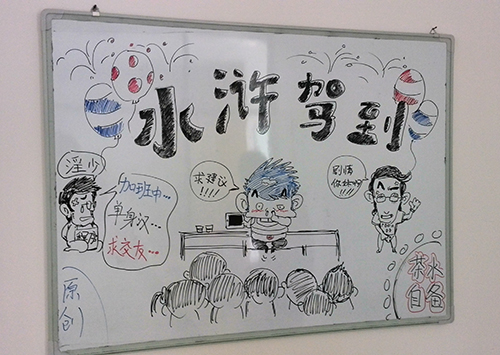 水浒驾到
淫少
加班中...
单身汉...
求交友...
求建议
!!!!
剧情
!!!
原创
茶水
自备